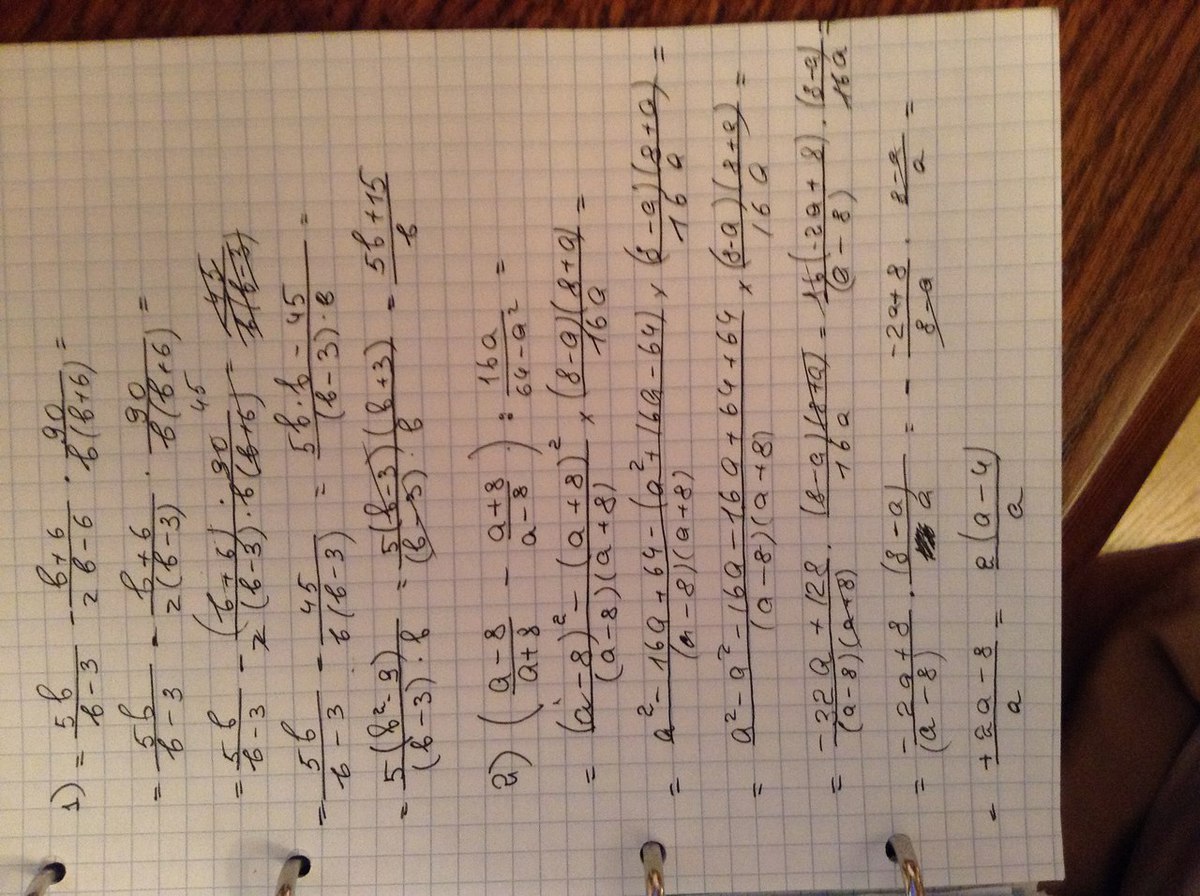 1) = 5b/(b-3) - (b+6)/(2b-6) · 90/(b(b+6)) =
= 5b/(b-3) - (b+6)/(2(b-3)) · 90/(b(b+6)) =
= 5b/(b-3) - ((b+6) · 90 45)/(2(b-3) · b(b+6)) = 45/(b(b-3))
= 5b/(b-3) - 45/(b(b-3)) = (5b·b - 45)/((b-3)·b) =
= 5(b²-9)/((b-3)·b) = 5(b-3)(b+3)/((b-3)·b) = (5b+15)/b
2) ((a-8)/(a+8) - (a+8)/(a-8)) : 16a/(64-a²) =
= ((a-8)² - (a+8)²)/((a-8)(a+8)) × (8-a)(8+a)/16a =
= (a²-16a+64-(a²+16a-64))/((a-8)(a+8)) × (8-a)(8+a)/16a =
= (a²-a²-16a-16a+64+64)/((a-8)(a+8)) × (8-a)(8+a)/16a =
= (-32a+128)/((a-8)(a+8)) · (8-a)(8+a)/16a = 16(-2a+8)/(a-8) · (8-a)/16a =
= (-2a+8)/(a-8) · (8-a)/a = - (-2a+8)/(8-a) · (8-a)/a =
= (+2a-8)/a = 2(a-4)/a